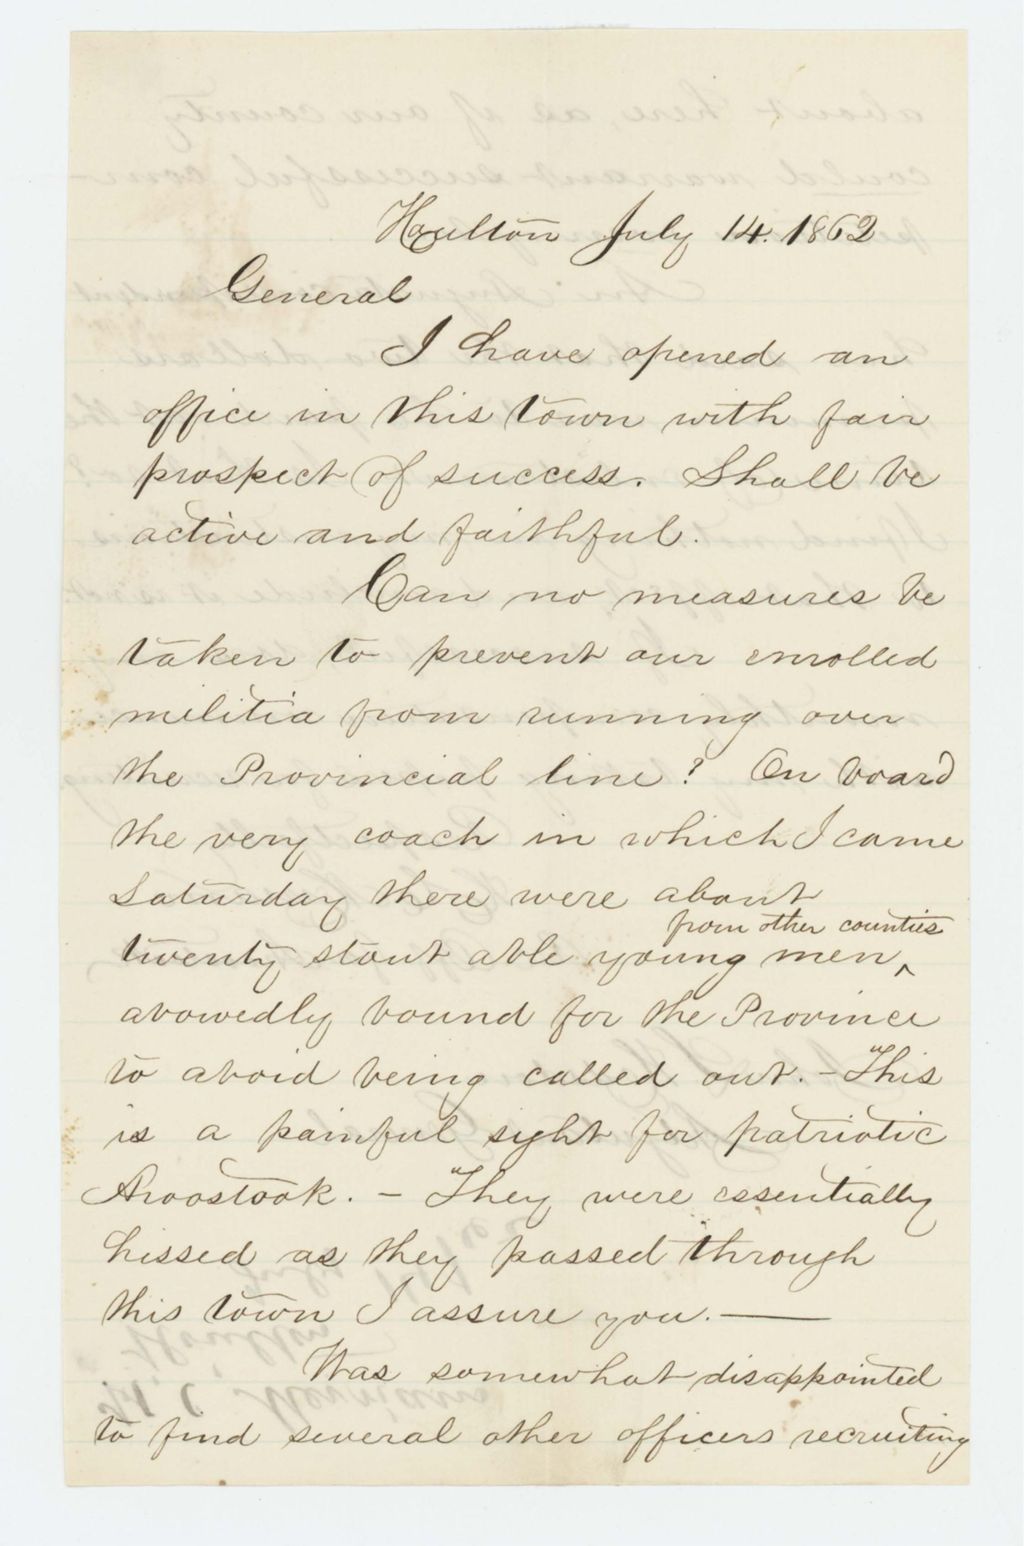 Houlton July 14. 1862
General
I have opened an
office in this town with fair
prospect of success. Shall be
active and faithful.
Can no measures be
taken to prevent our enrolled
militia from running over
the Provincial line? On board
the very coach in which I came
Saturday there were about
from other counties
twenty stout able young men ‸
avowedly bound for the Province
to avoid being called out. - This
is a painful sight for patriotic
Aroostook. - They were essentially
hissed as they passed through
this town I assure you. —
Was somewhat disappointed
to find several other officers recruiting